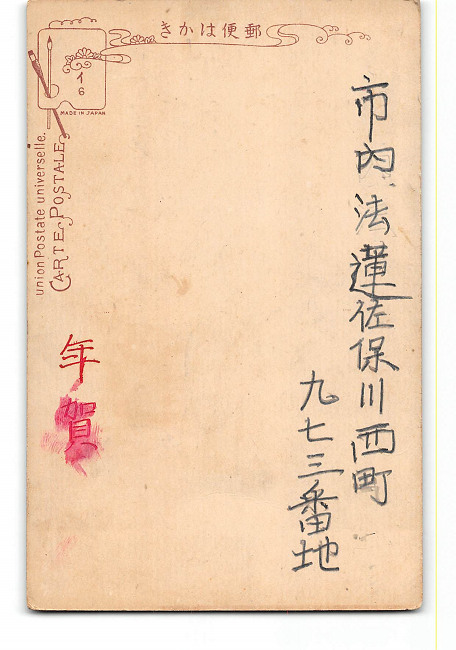 郵便はかき
1
6
MADE IN JAPAN
union Postale universelle.
CARTE POSTALE
市内法蓮佐保川西町
九七三番地
年賀